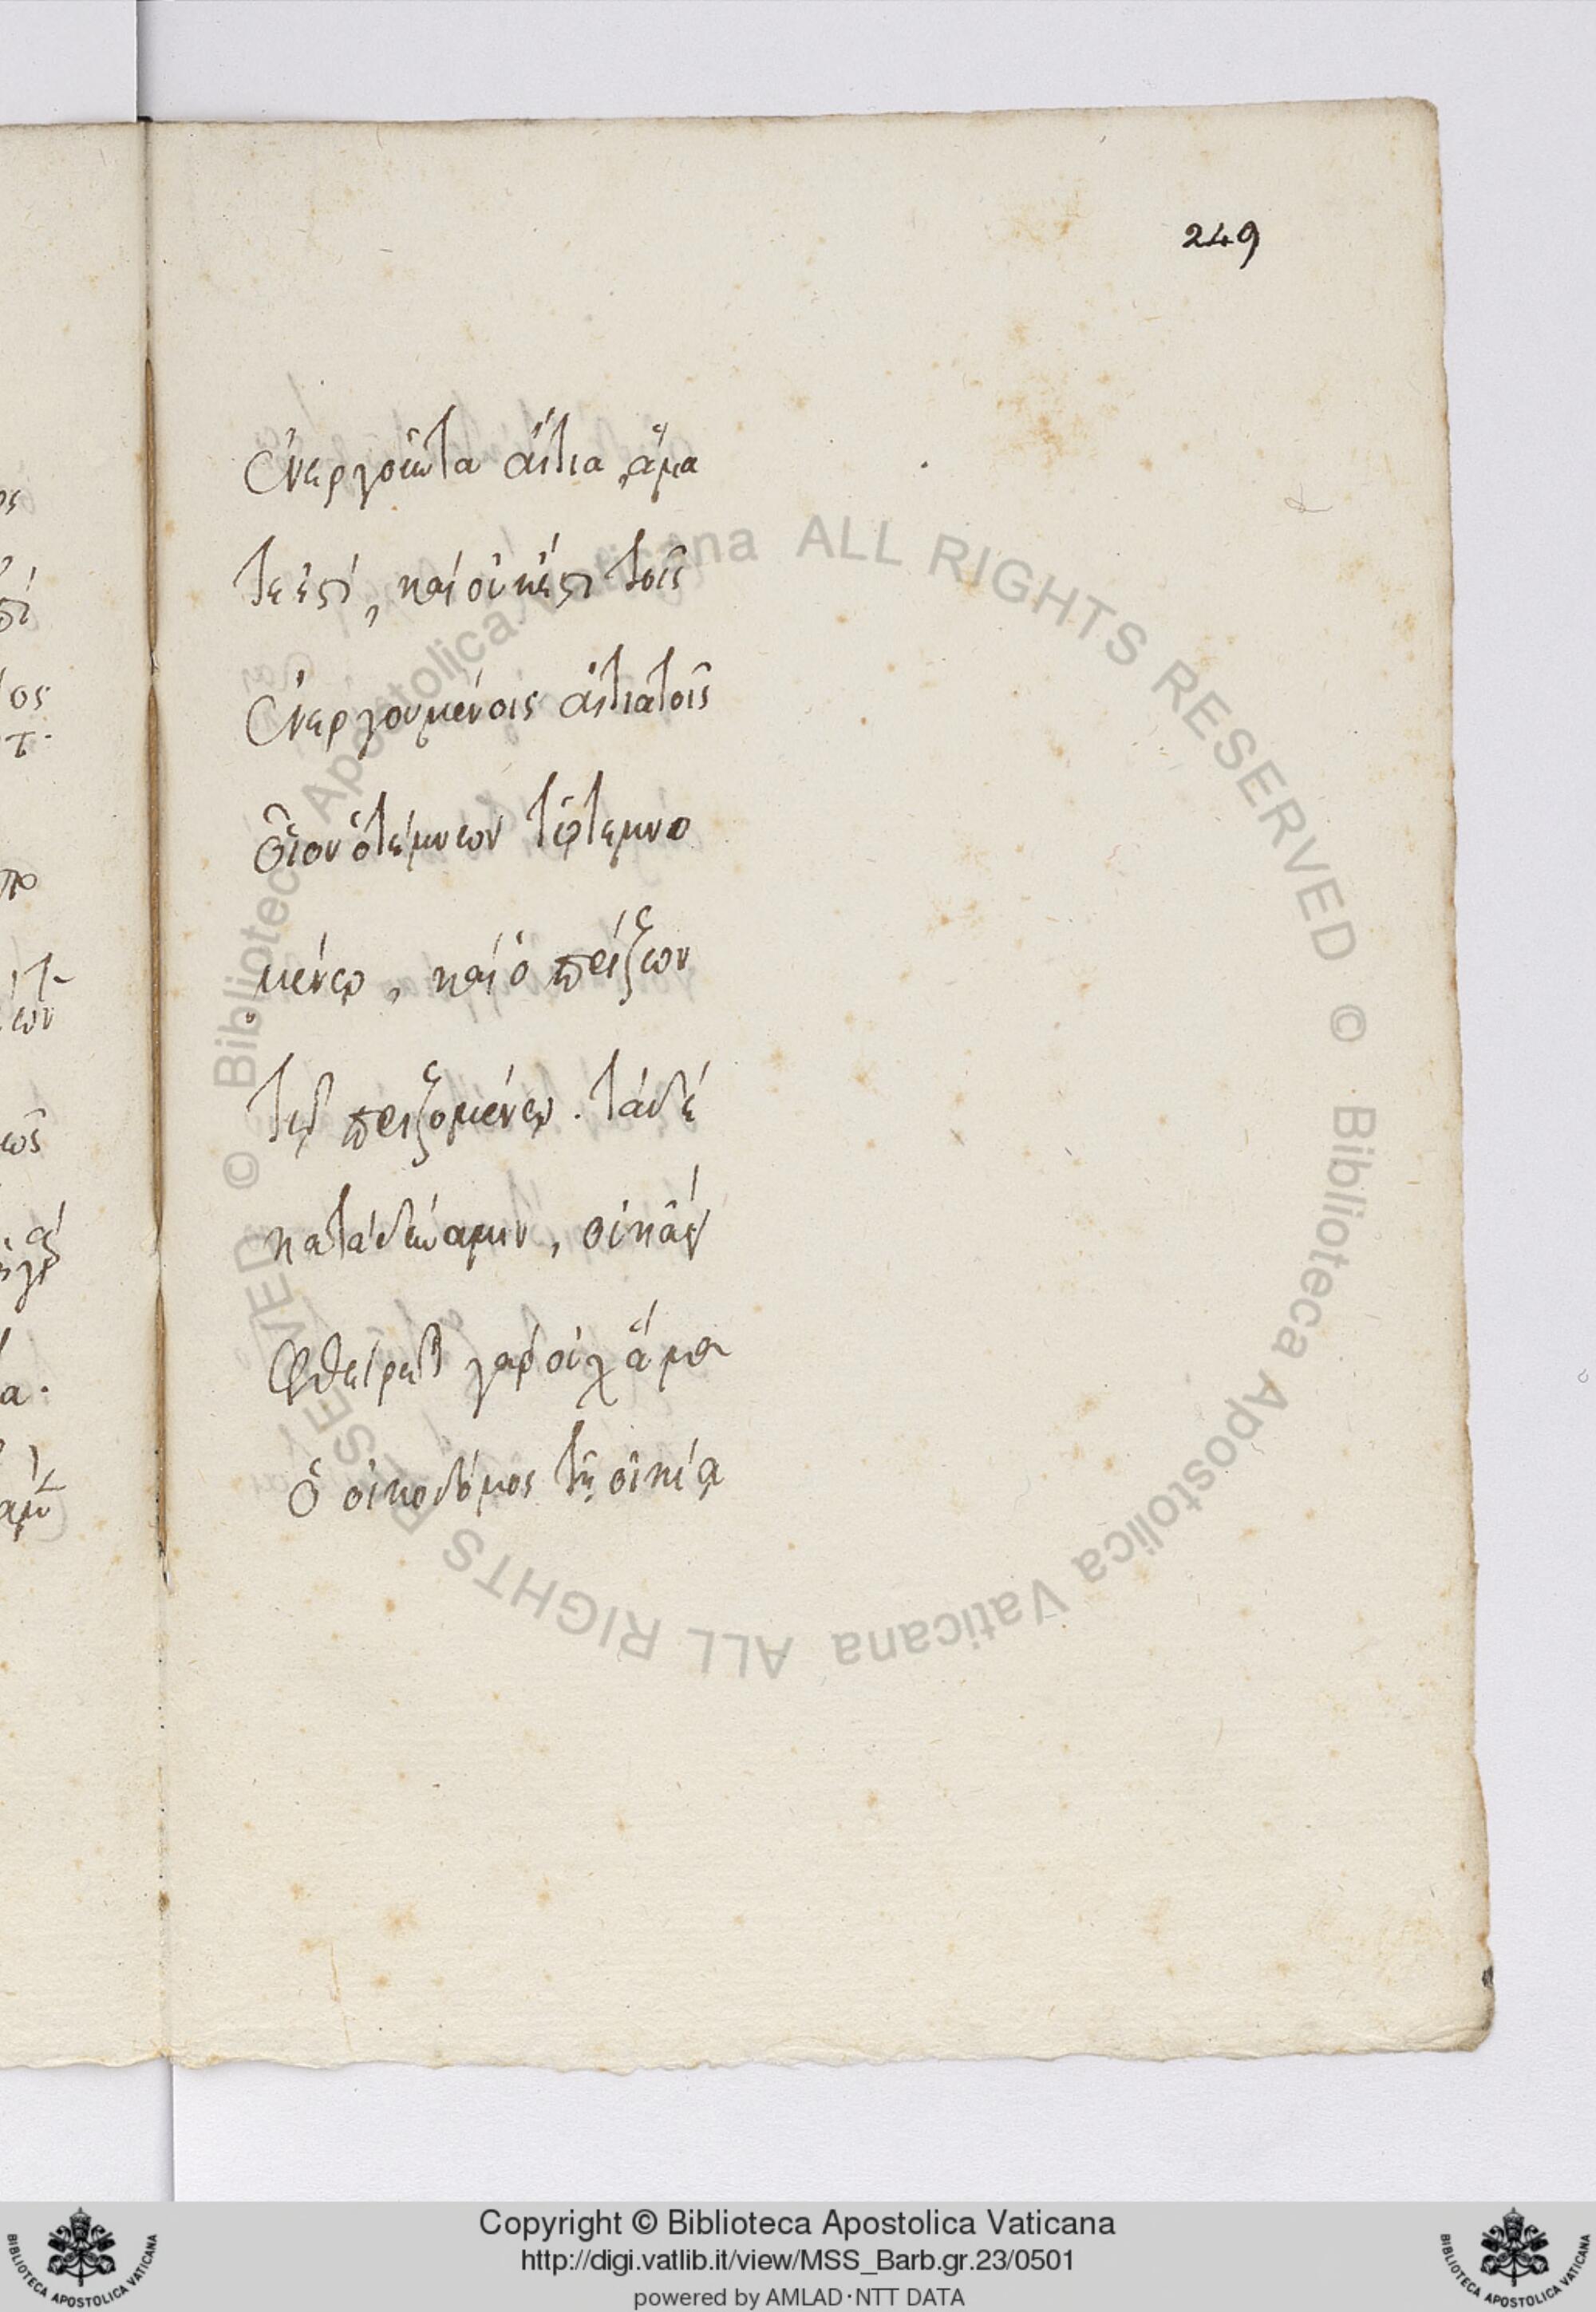 249
ἐνεργοῦντα αἴτια, ἅμα
τε ἐστί, καὶ οὐκ ἔστι τοῖς
ἐνεργουμένοις αἰτιατοῖς
οἷον ὁ τέμνων τῷ τεμνο
μένῳ, καὶ ὁ πρίζων
τῷ πριζομένῳ. τὰ δὲ
κατὰ δύναμιν, οὐκ ἀεὶ
φθείρεται γὰρ οὐχ ἅμα
ὁ οἰκοδόμος τῇ οἰκίᾳ
© Biblioteca Apostolica Vaticana ALL RIGHTS RESERVED © Biblioteca Apostolica Vaticana ALL RIGHTS RESERVED
Copyright © Biblioteca Apostolica Vaticana
http://digi.vatlib.it/view/MSS_Barb.gr.23/0501
powered by AMLAD·NTT DATA
BIBLIOTECA APOSTOLICA VATICANA
BIBLIOTECA APOSTOLICA VATICANA